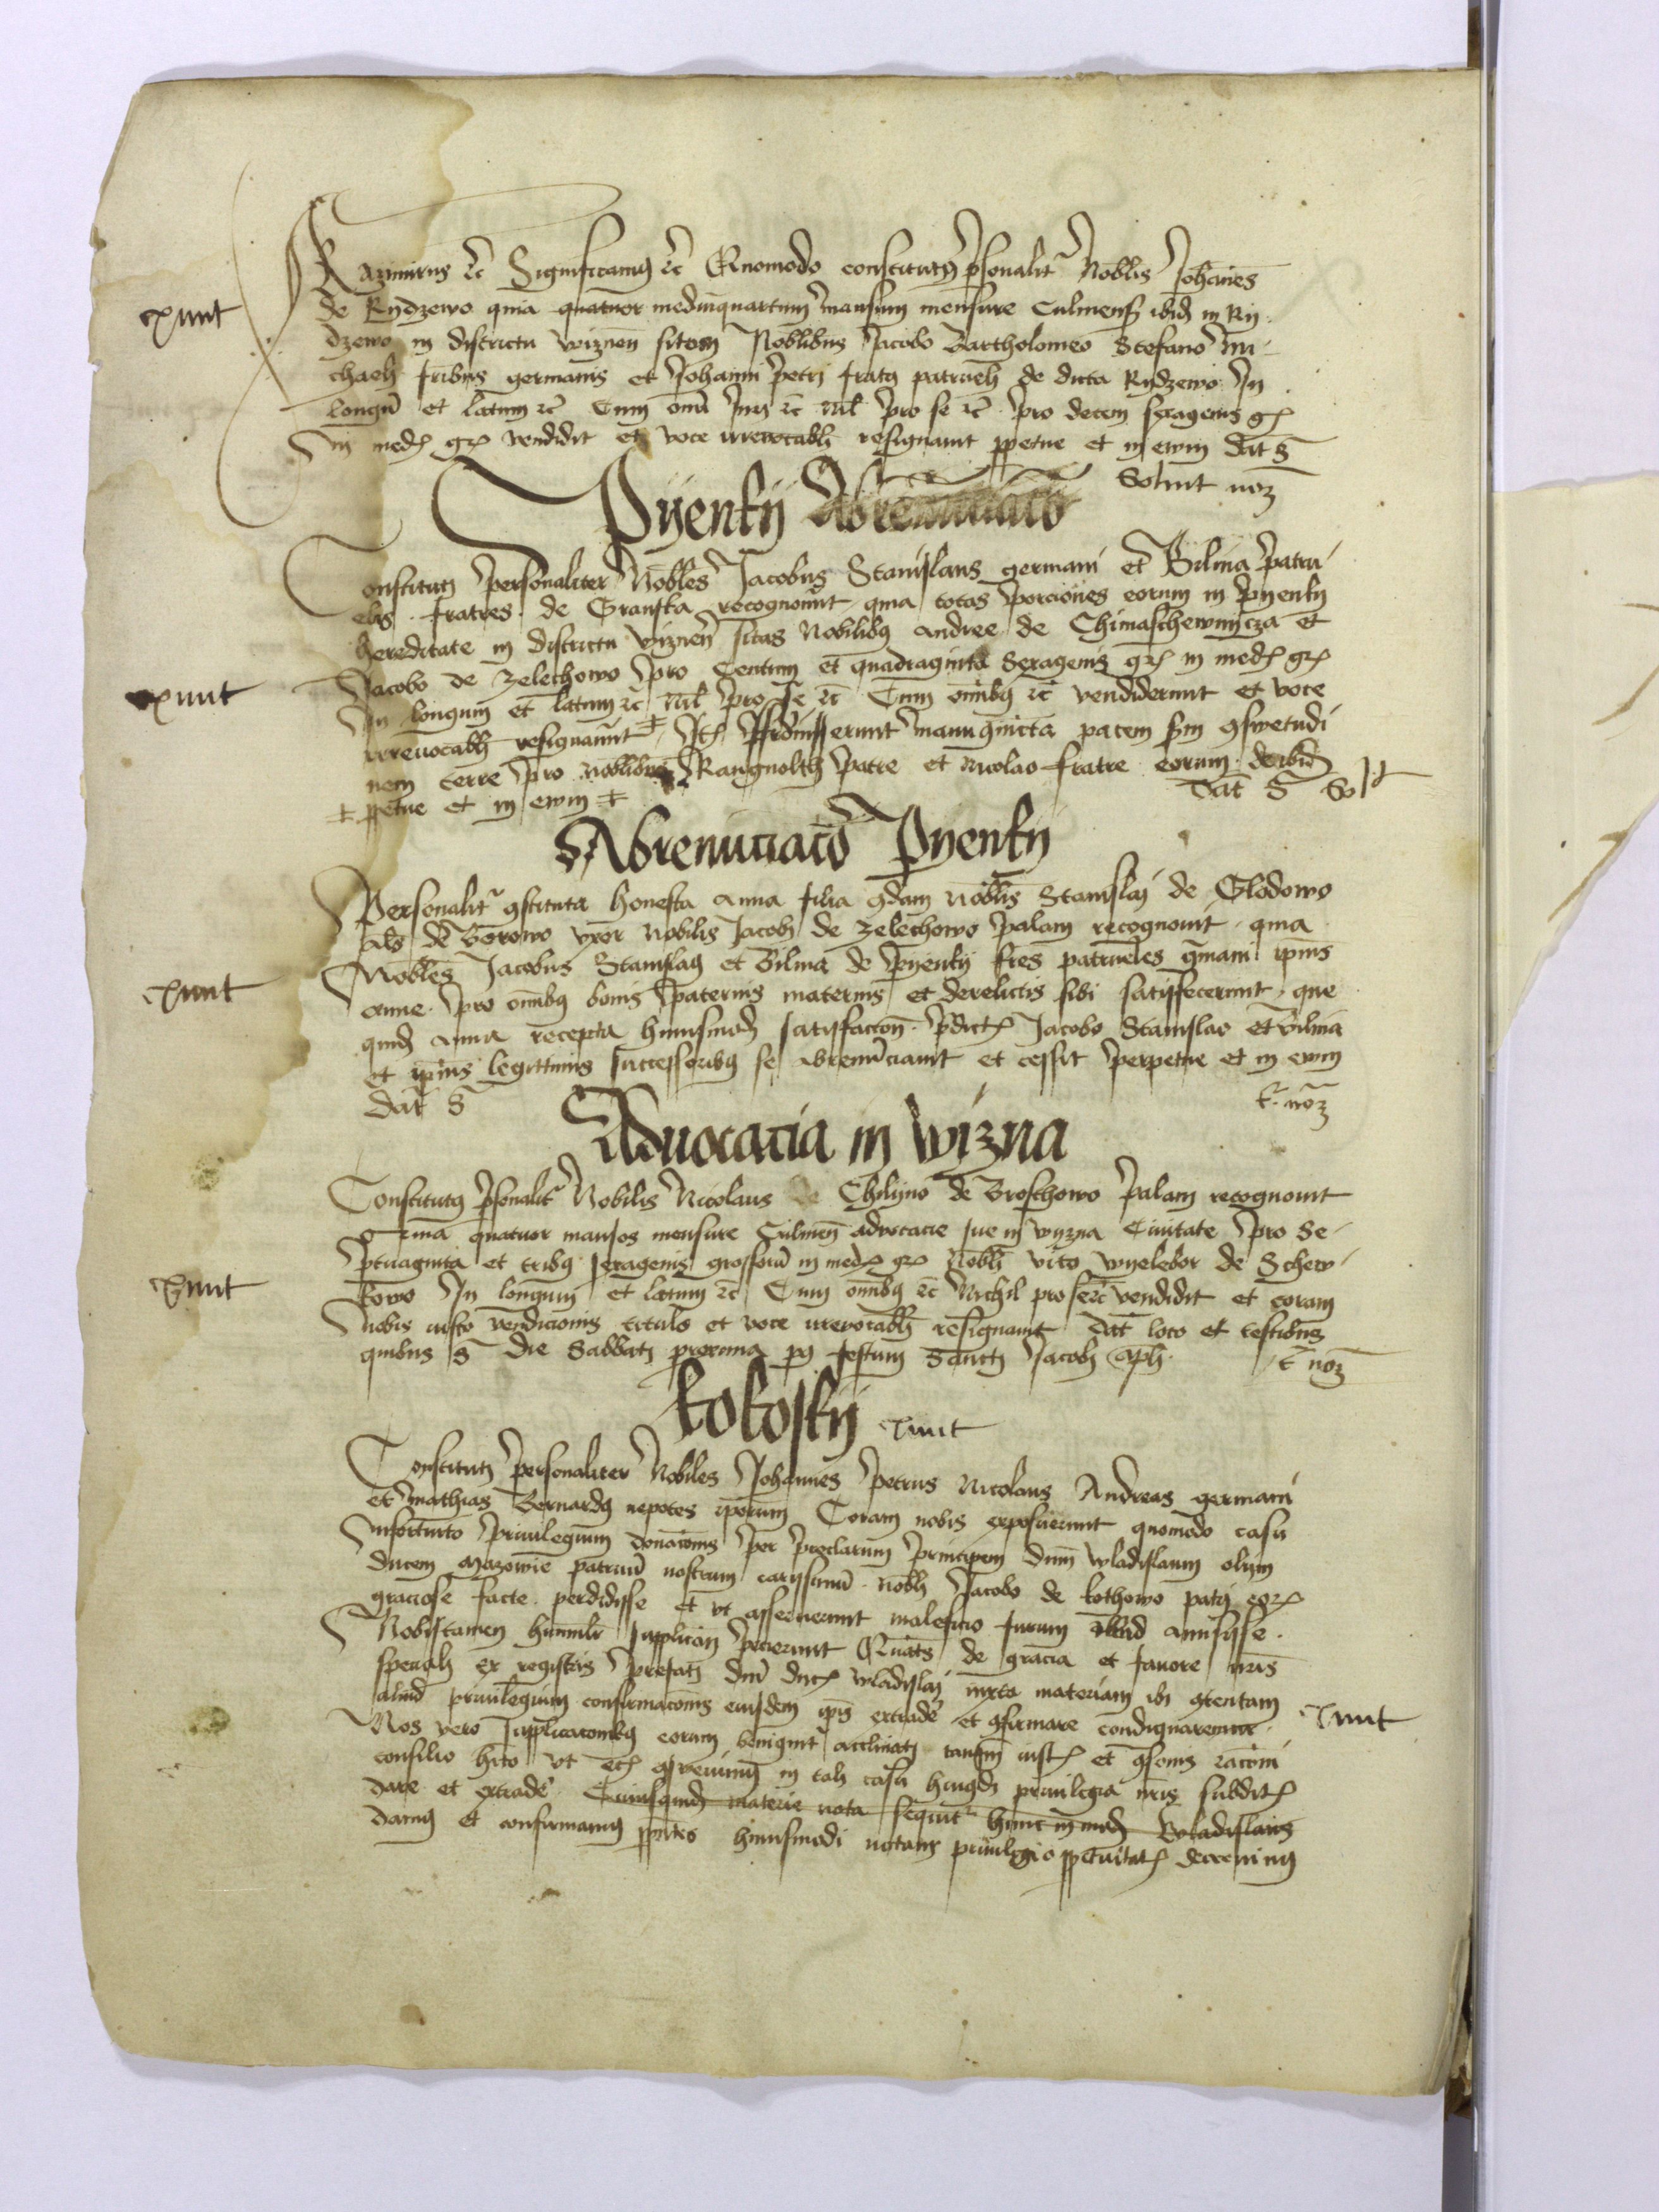 Kazimirus etc̄ Significamus etc̄ Quomodo constitutus p̄sonalit̄ Nobilis Johānes
xunt
de Rydzewo quia quatuor mediūquartum mansum mensure Culmens̄ ibid̄ in Ry-
dzewo in districtu Wiznen̄ situm Nobilibus Jacobo Bartholomeo Stefano Mi-
chaeli fr̄ibus germanis et Johanni Petri fratri patrueli de dicta Rydzewo In
longū et latum etc̄ Cum om̄i iure etc̄ nil pro se etc̄ pro decem sexagenis gr̄
in med̄ gr̄ vendidit et voce irrevocabili resignauit p̄petue et in ewm Dat̄ s̄
Soluit noȝ
Pyenky Abrenuciacō
Constituti personaliter Nobiles Jacobus Stanislaus germani et Bilina patru
elis fratres de Granska recognouerūt quia totas porciones eorum in Pyenky
hereditate in districtu Viznen̄ sitas Nobilibus Andree de Chimaschewnycza et
Jacobo de Zelechowo pro Centum et quadraginta Sexagenis gr̄ in med̄ gr̄
xunt
In longum et latum etc̄ nil pro se etc̄ Cum om̄ibus etc̄ vendiderunt et voce
irreuocabili resignauer̄t
nem terre pro nobilibus patre et Nicolao fratre eorum de ibid̄
p̄petue et in ewm
Dat̄ s̄ Solt
Abrenūciacō Pyenky
Personalit̄ 9stituta honesta Anna filia q̄dam nobilis Stanislai de Glodowo
al̄s de Borowo vxor nobilis Jacobi de Zelechowo palam recognouit quia
Nobiles Jacobus Stanislaus et Bilina de Pyenky fr̄es patrueles germani ip̄ius
xunt
Anne pro om̄ibus bonis paternis maternis et derelictis sibi satisfecerunt que
quid̄ Anna recepta huiusmodi satisfaccion̄ p̄dictis Jacobo Stanislao et Bilina
et ip̄ius legittimis successoribus se abrenūciauit et cessit perpetue et in ewm
Dat̄ s̄
t̄ noȝ
Aduocacia in Wizna
Constitutus p̄sonalit̄ Nobilis Nicolaus de Chilyno de Broschowo palam recognouit
Quia quatuor mansos mensure Culmen̄ aduocacie sue in Wyzna Ciuitate pro Se-
ptuaginta et tribus sexagenis grossorū in med̄ gr̄ nobili Vito Wyelebor de Schew-
xunt
kowo In longum et latum etc̄ Cum om̄ibus etc̄ Nichil pro se etc̄ vendidit et coram
nobis iusto vendicionis titulo et voce irrevocabili resignauit Dat̄ loco et testibus
quibus s̄ Die Sabbati proxima p9 festum Sancti Jacobi Apli
t̄ noȝ
Kokosky xunt
Constituti personaliter Nobiles Johannes Petrus Nicolaus Andreas germani
et Mathias Bernardus nepotes ip̄orum Coram nobis exposuerunt quomodo casu
infortuito priuilegium donacionis per preclarum principem Dnm̄ Wladislaum olim
ducem Mazowie patruū nostrum carissimū nobili Jacobo de Kothowo patri eor̄
graciose facte perdidisse et vt asseruerunt maleficio furum illud amisisse
Nobis tamen humilit̄ supplican̄ pecierunt Quat̄s de gracia et fauore nr̄is
ex registris prefati dn̄i ducis Wladislai iuxta materiam ibi 9tentam
aliud priuilegium confirmacionis eiusdem ip̄is extrade et 9firmare condignaremur
xunt
Nos vero supplicacionibus eorum benignit̄ acclinati tanq̄ iustis et 9sonis racōni
consilio hīto vt in tali casu huiusmodi priuilegia nr̄is subditis
dare et extrade Cuiusquid̄ materie nota sequit̄ hunc in modū Wladislaus
damus et confirmamus p̄ntes huiusmodi notam priuilegio p̄petuitatis decernimus